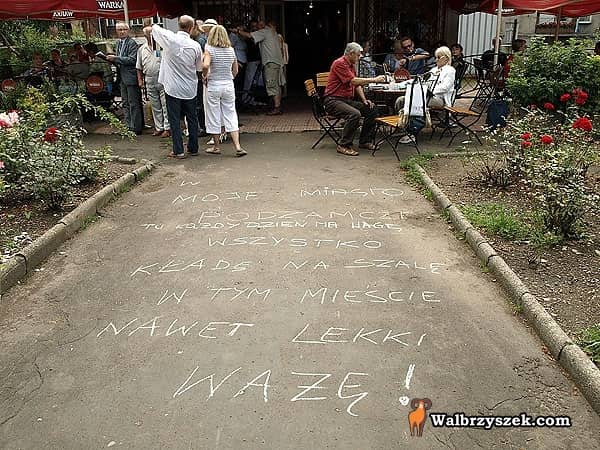 WARKA
WARKA
W
MOJE MIASTO
PODZAMCZE
TU KAŻDY DZIEŃ MA WAGĘ
WSZYSTKO
KŁADĘ NA SZALĘ
W TYM MIEŚCIE
NAWET LEKKI
WAŻĘ!
Walbrzyszek.com